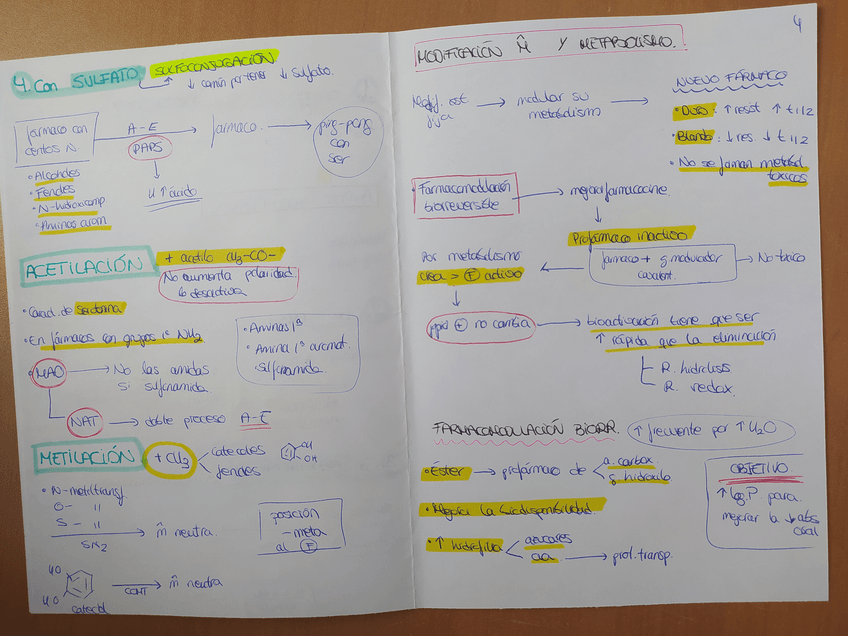 4. Con SULFATO SULFOCONJUGACIÓN
↓ común por tener ↓ sulfato.
fármaco con
centros N
A-E
PAPS
fármaco.
ping-pong
con
ser
↑ ácido
· Alcoholes
· Fenoles
· N-hidroxicomp
· Aminas arom
ACETILACIÓN
+ acetilo CH3-CO-
No aumenta polaridad
lo desactiva
· Caract. de
· En fármacos con grupos 1º NH2
· Aminas 1ª
· Amina 1ª aromat.
· sulfonamida
MAO → No las amidas
si sulfonamida
NAT → doble proceso A-E
METILACIÓN
+ CH3
catecoles
OH
OH
fenoles
· N-metiltransf
O- "
S- "
SN2
m̂ neutra.
posición
-meta
al
HO
HO
catecol
COMT
m̂ neutra
4
MODIFICACIÓN M̂ Y METABOLISMO.
Modif. est
fija
modular su
metabolismo
NUEVO FÁRMACO
· Duro: ↑ resist ↑ t1/2
· Blando: ↓ res ↓ t1/2
· No se forman metabol.
tóxicos
· Farmacomodulación
biorreversible
mejora farmacocine.
Profármaco inactivo
fármaco + g. modulador
covalent.
→ No tóxico
Por metabolismo
activo
no cambia
bioactivación tiene que ser
↑ rápida que la eliminación
R. hidrólisis
R. redox.
FARMACOMODULACIÓN BIORR.
↑ frecuente por ↑ H2O
· Éster → profármaco de
a. carbox
g. hidroxilo
· Mejora la biodisponibilidad.
· ↑ hidrofilia
azúcares
aa → prot. transp.
OBJETIVO
↑ log. P para
mejorar la abs
oral